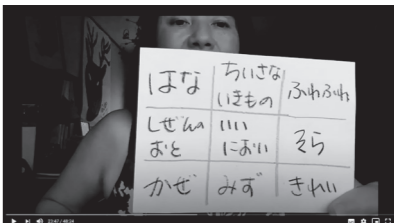 はな
ちいさな
いきもの
ふわふわ
しぜんの
おと
いい
におい
そら
かぜ
みず
きれい